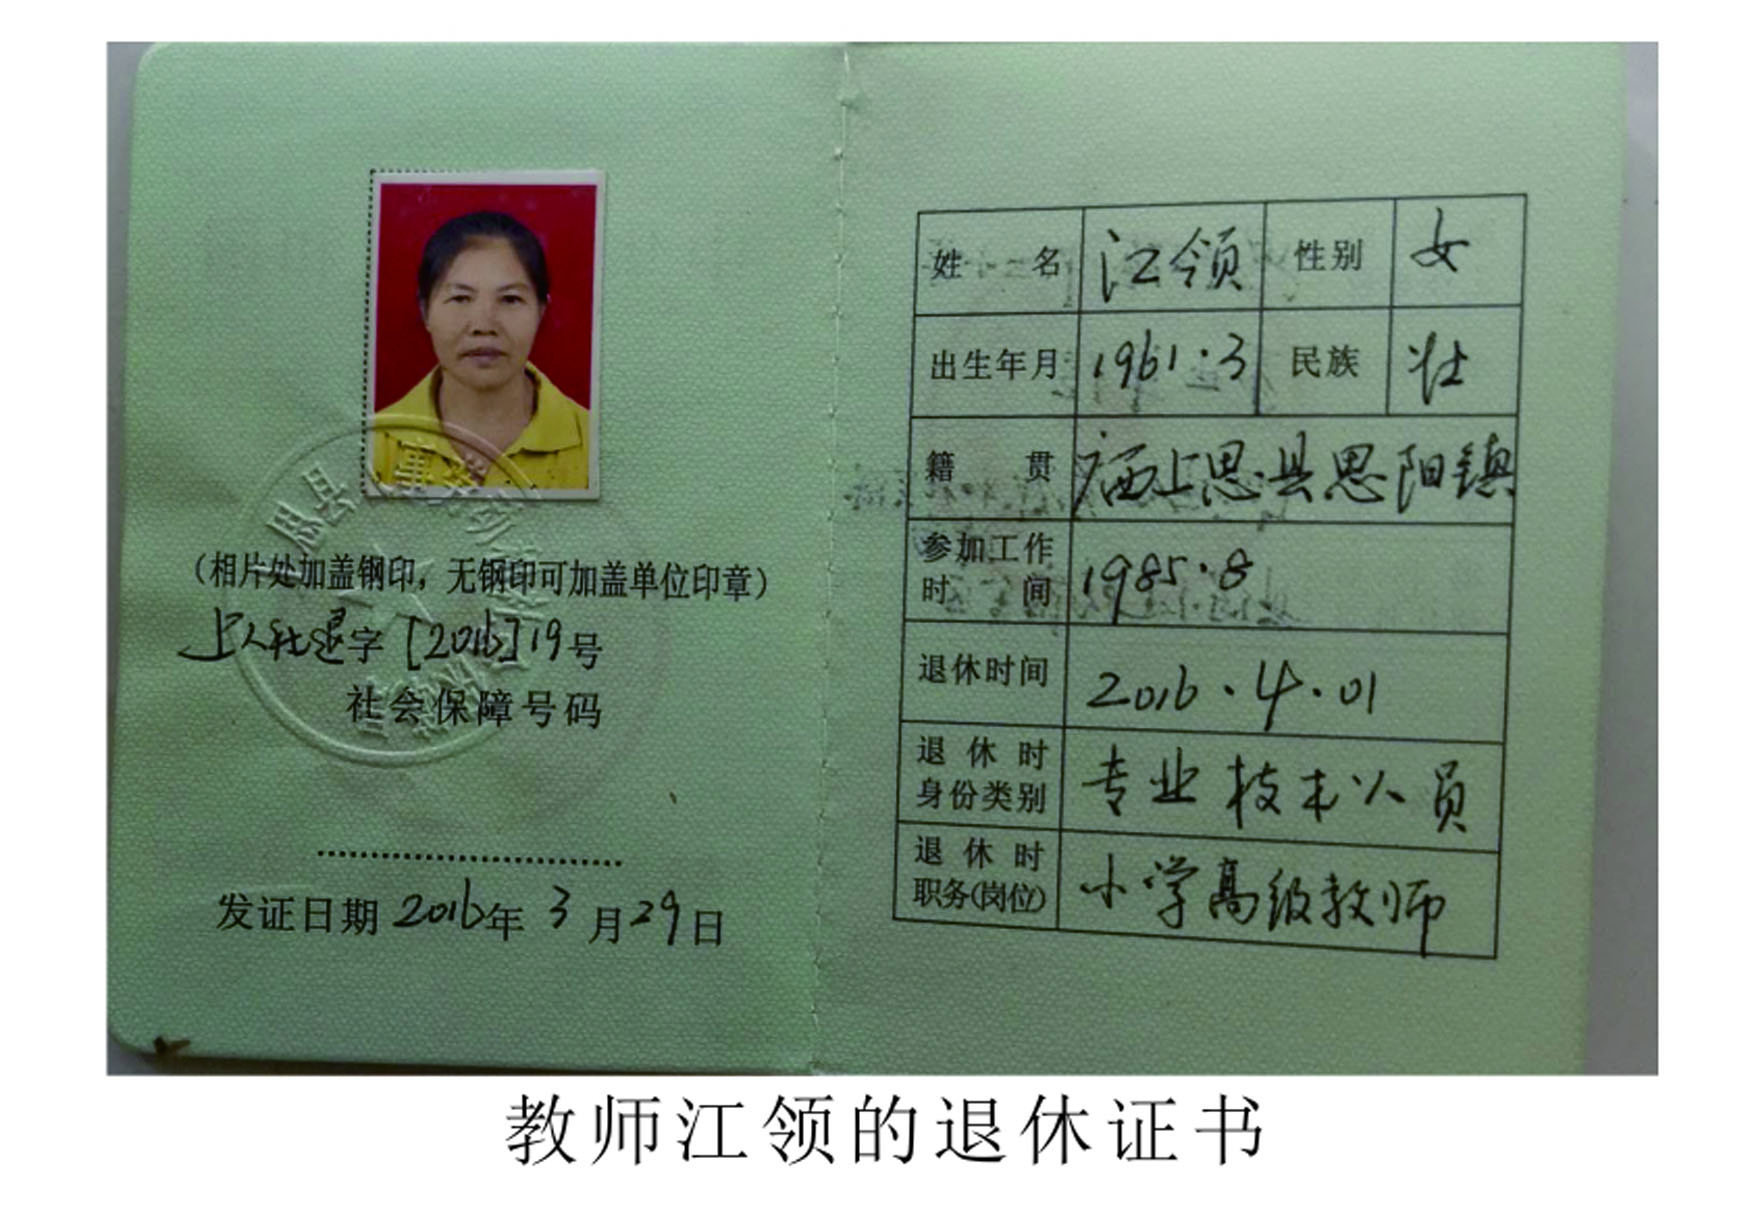 （相片处加盖钢印，无钢印可加盖单位印章）
上人社退字［2016］19号
社会保障号码
发证日期 2016年 3 月29日
姓名 江领 性别 女
出生年月 1961·3 民族 壮
籍贯 广西上思县思阳镇
参加工作
时间 1985·8
退休时间 2016·4·01
退休时
身份类别 专业技术人员
退休时
职务（岗位） 小学高级教师
教师江领的退休证书